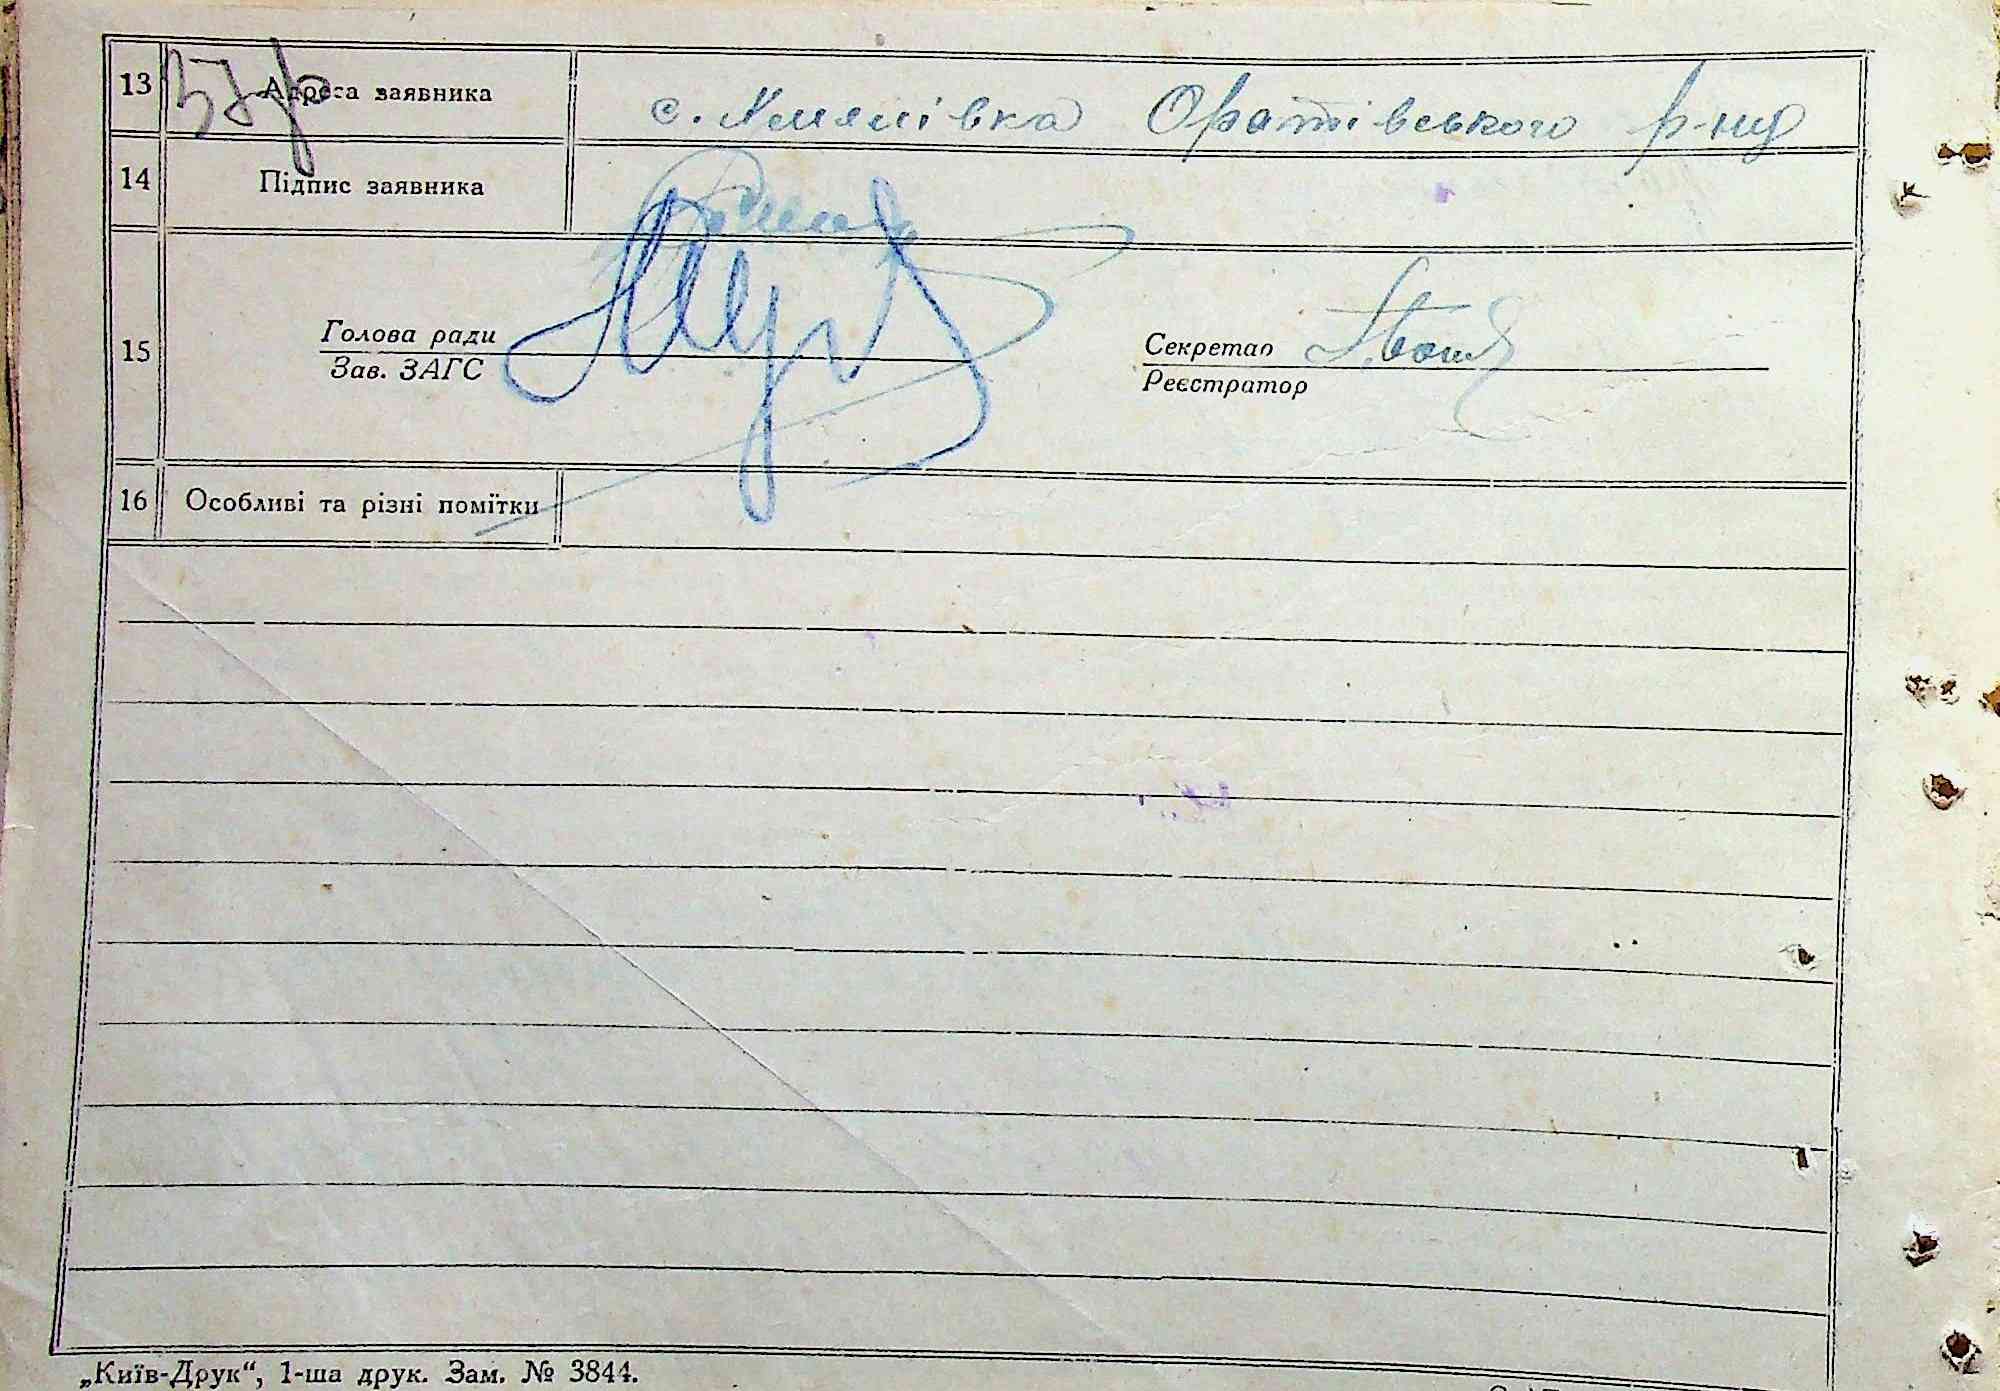 13 Адреса заявника с. Оратівського р-ну
14 Підпис заявника
15 Голова ради Секретар
Зав. ЗАГС Реєстратор
16 Особливі та різні помітки
„Київ-Друк“, 1-ша друк. Зам. № 3844.